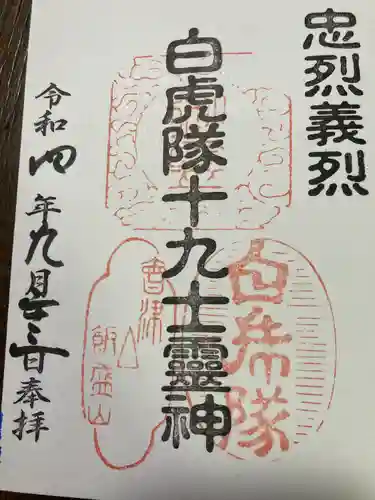 忠烈義烈
白虎隊十九士靈神
白虎隊
會津
飯盛山
令和四年九月廿三日奉拝